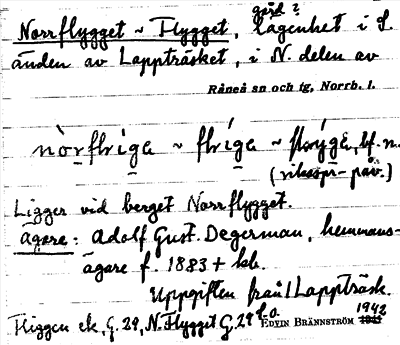 gård?
Norrflygget ~ Flygget, Lägenhet i S.
änden av Lappträsket, i N. delen av
Råneå sn och tg, Norrb. l.
nòrflriga ~ flríga ~ bf. n.
(riksspr-påv.)
Ligger vid berget Norrflygget.
Ägare: Adolf Gust. Degerman, hemmans-
ägare f. 1883 + kb.
Uppgiften från Lappträsk.
Fliggen ek. G. 29, N. Flygget G. 29 1942
EDVIN BRÄNNSTRÖM